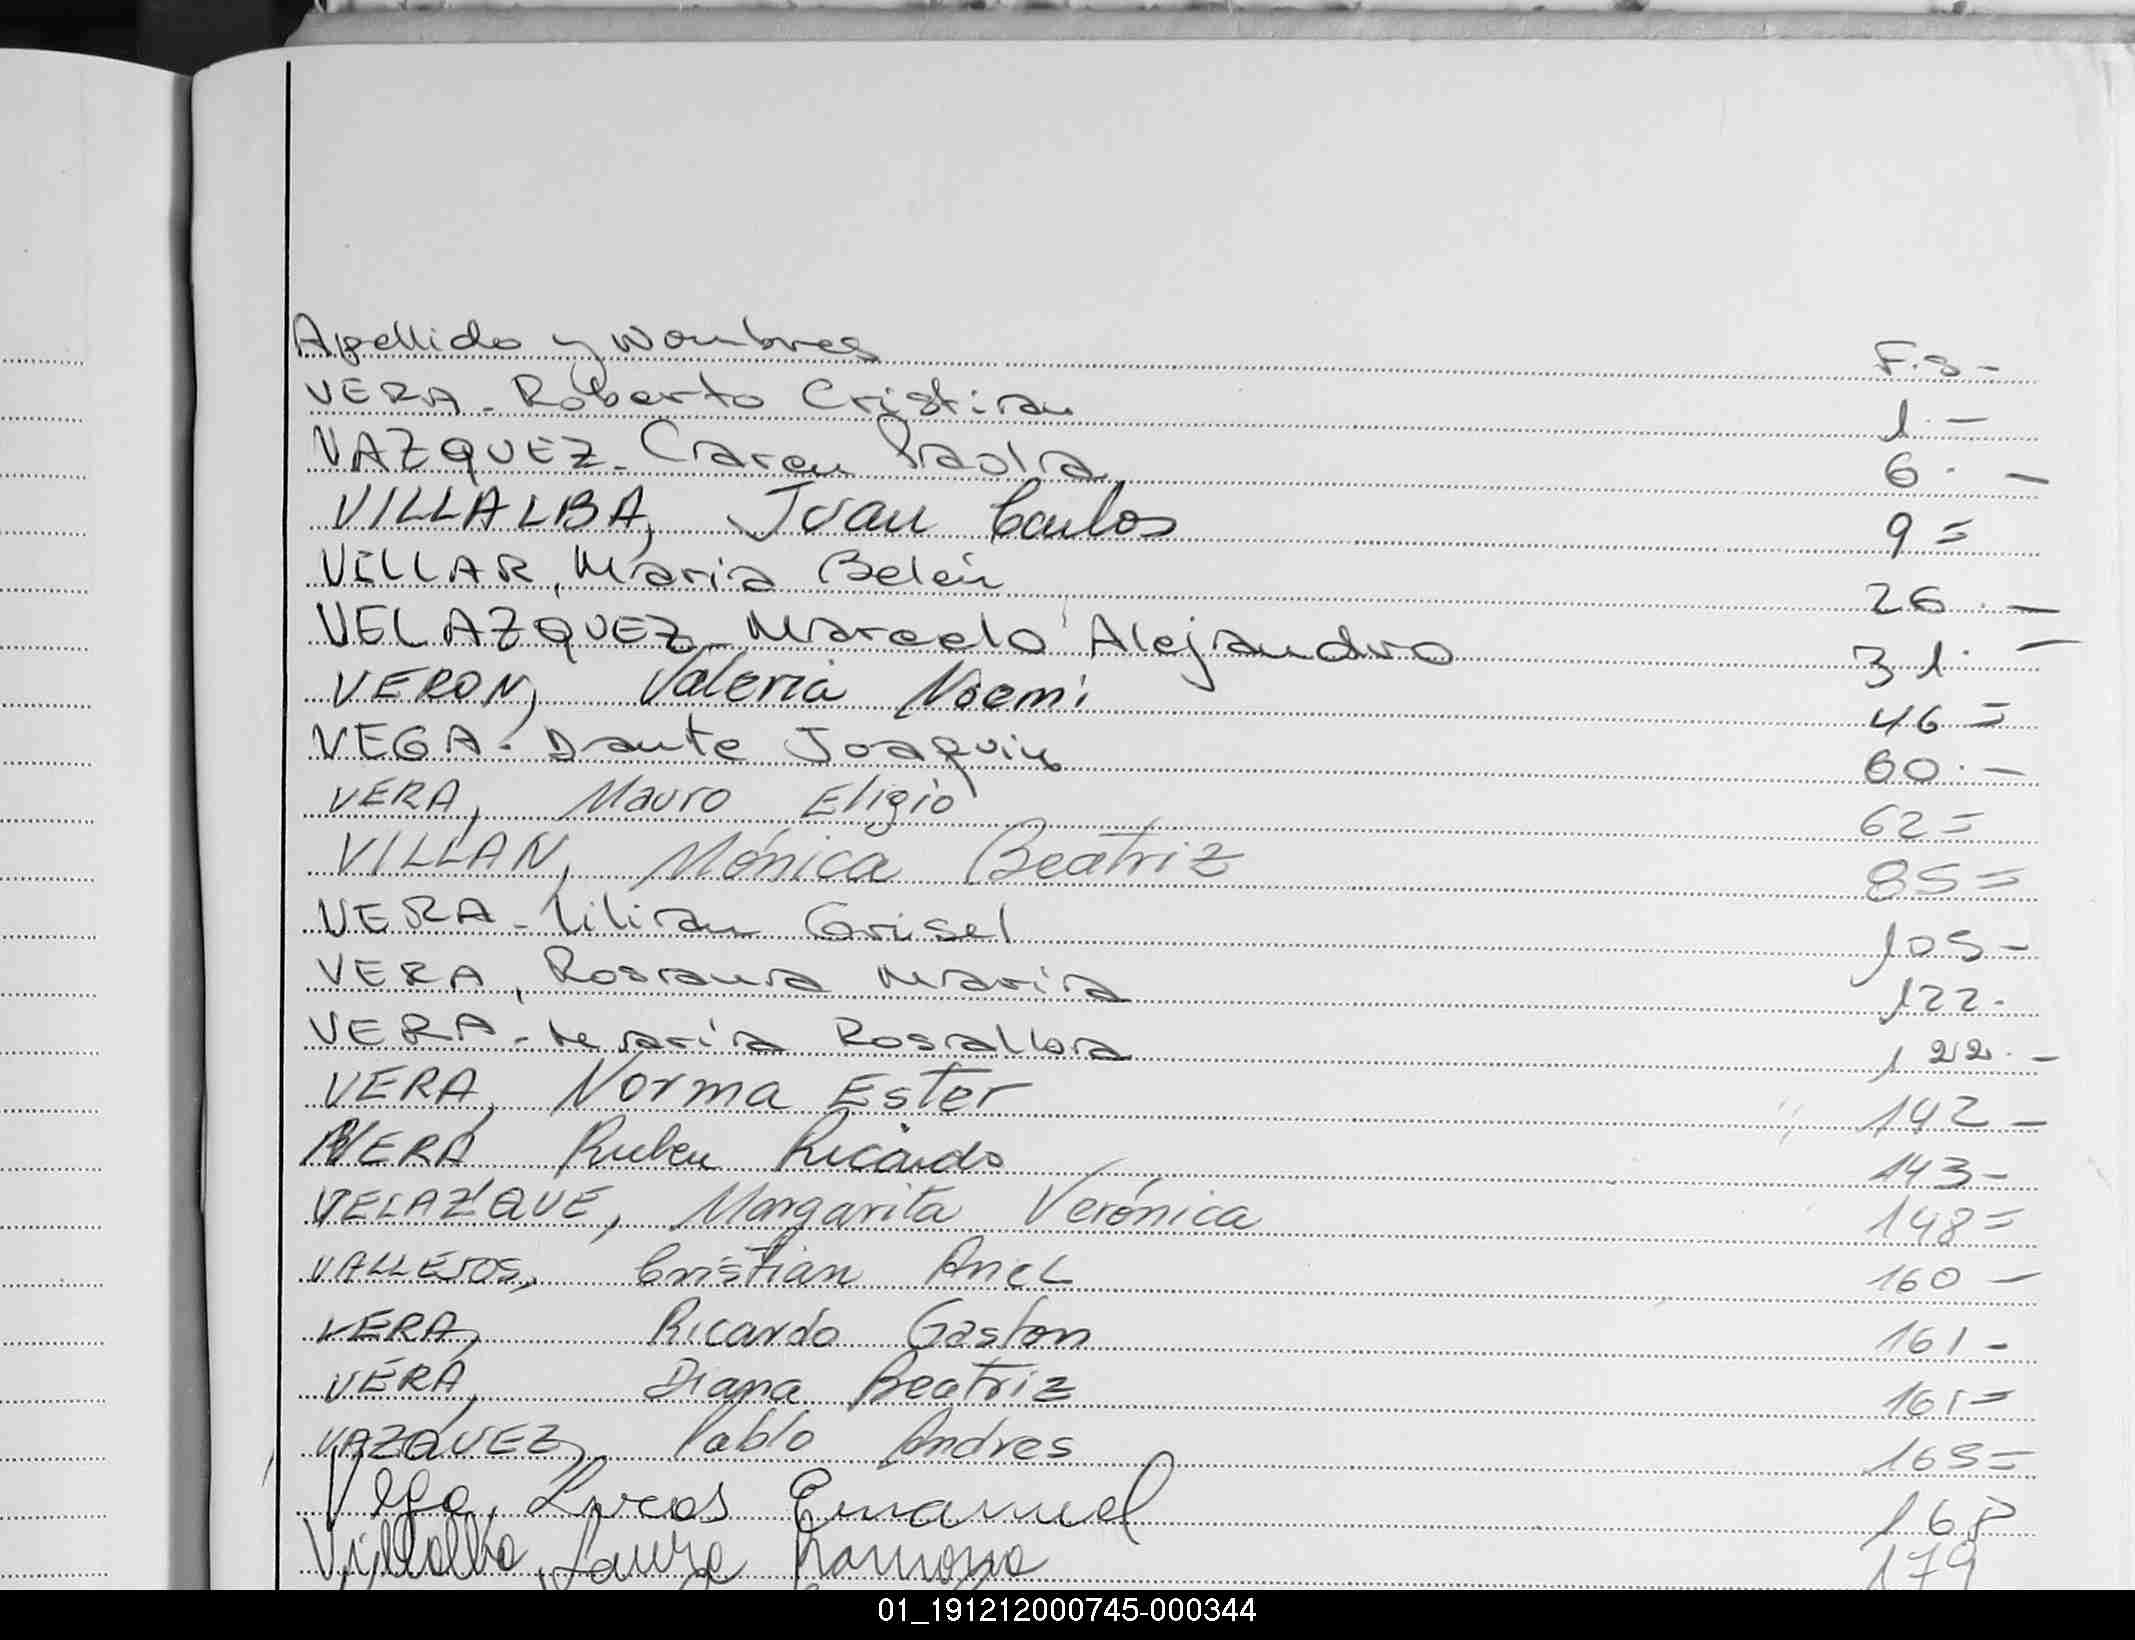 Apellido y Nombres F.s -
VERA - Roberto Cristian 1. -
VAZQUEZ - Caren Paola 6. -
VILLALBA, Juan Carlos 9 =
VILLAR, Maria Belén 26. -
VELAZQUEZ - Marcelo Alejandro 31. -
VERON, Valeria Noemi 46 =
VEGA - Dante Joaquin 60. -
VERA, Mauro Eligio 62 =
VILLAN, Mónica Beatriz 85 =
VERA - Lilian Grisel 105 -
VERA, Rosana Maria 122.
VERA - Maria Rosalba 122. -
VERA, Norma Ester 142 -
VERA Ruben Ricardo 143 -
VELAZQUE, Margarita Verónica 148 =
VALLEJOS, Cristian Ariel 160 -
VERA, Ricardo Gaston 161 -
VERA, Diana Beatriz 161 =
VAZQUEZ, Pablo Andres 165 =
Vega, Lucas Emanuel 168
Villalba, Laura Ramona 179
01_191212000745-000344